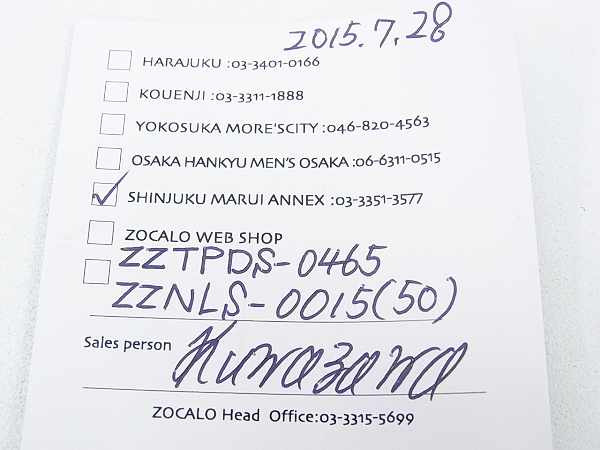 2015.7.28
HARAJUKU :03-3401-0166
KOUENJI :03-3311-1888
YOKOSUKA MORE'SCITY :046-820-4563
OSAKA HANKYU MEN'S OSAKA :06-6311-0515
SHINJUKU MARUI ANNEX :03-3351-3577
ZOCALO WEB SHOP
ZZTPDS-0465
ZZNLS-0015(50)
Sales person Kuwazawa
ZOCALO Head Office:03-3315-5699